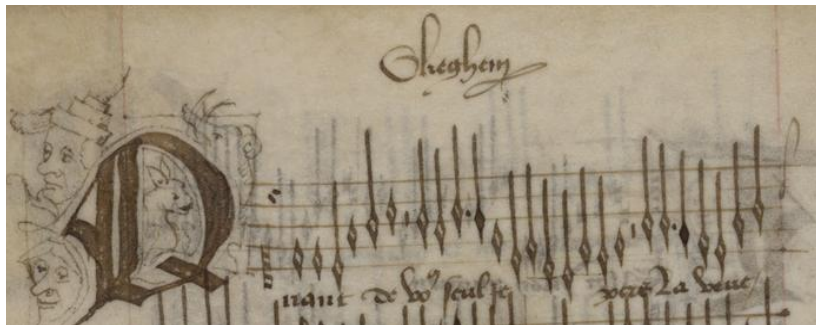 Okeghem
Quant de vo9 seul je pers La veue